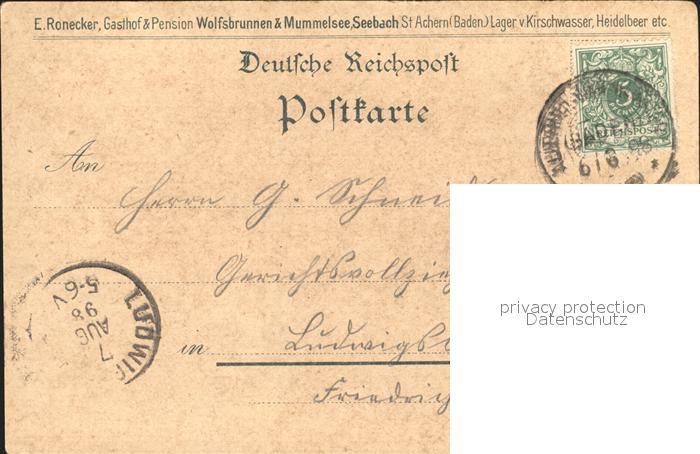 E. Ronecker, Gasthof & Pension Wolfsbrunnen & Mummelsee, Seebach St Achern (Baden) Lager v. Kirschwasser, Heidelbeer etc.
Deutsche Reichspost
Postkarte
5
REICHSPOST
6/8 98
An
Herrn G. Schneid
Gerichtsvollzie
in Ludwigsb
Friedrich
LUDWIG
7
AUG
98
5-6 V
privacy protection
Datenschutz